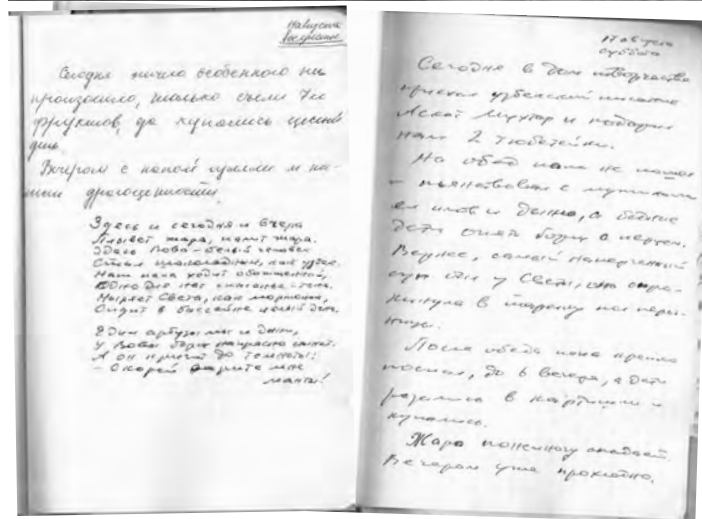 августа
воскресенье
Сегодня ничего особенного не
произошло, только съели 7 кг
фруктов, да купались целый
день.
Вечером с папой гуляли и на-
шли драгоценности.
Здесь и сегодня и вчера
Плывет жара, палит жара.
Здесь Вова - белый человек
Стал шоколадным, как узбек.
Наш папа ходит обожженный,
Ныряет Света, как моржонок,
Сидит в бассейне целый день.
Едим арбузы мы и дыни,
У Вовы борщ напрасно стынет.
А он кричит до темноты:
- Скорей варите мне
манты!
17 августа
суббота
Сегодня в Дом творчества
приехал узбекский писатель
Аскат Мухтар и подарил
нам 2 тюбетейки.
На обед папа не пошел
- пьянствовал с мужиками
ел плов и дыню, а бедные
дети опять борщ с перцем.
Вернее, самый наперченный
суп был у Светы, она опро-
кинула в тарелку пол переч-
ницы.
После обеда папа крепко
поспал, до 6 вечера, а дети
резались в картишки и
купались.
Жара понемногу спадает.
Вечером уже прохладно.